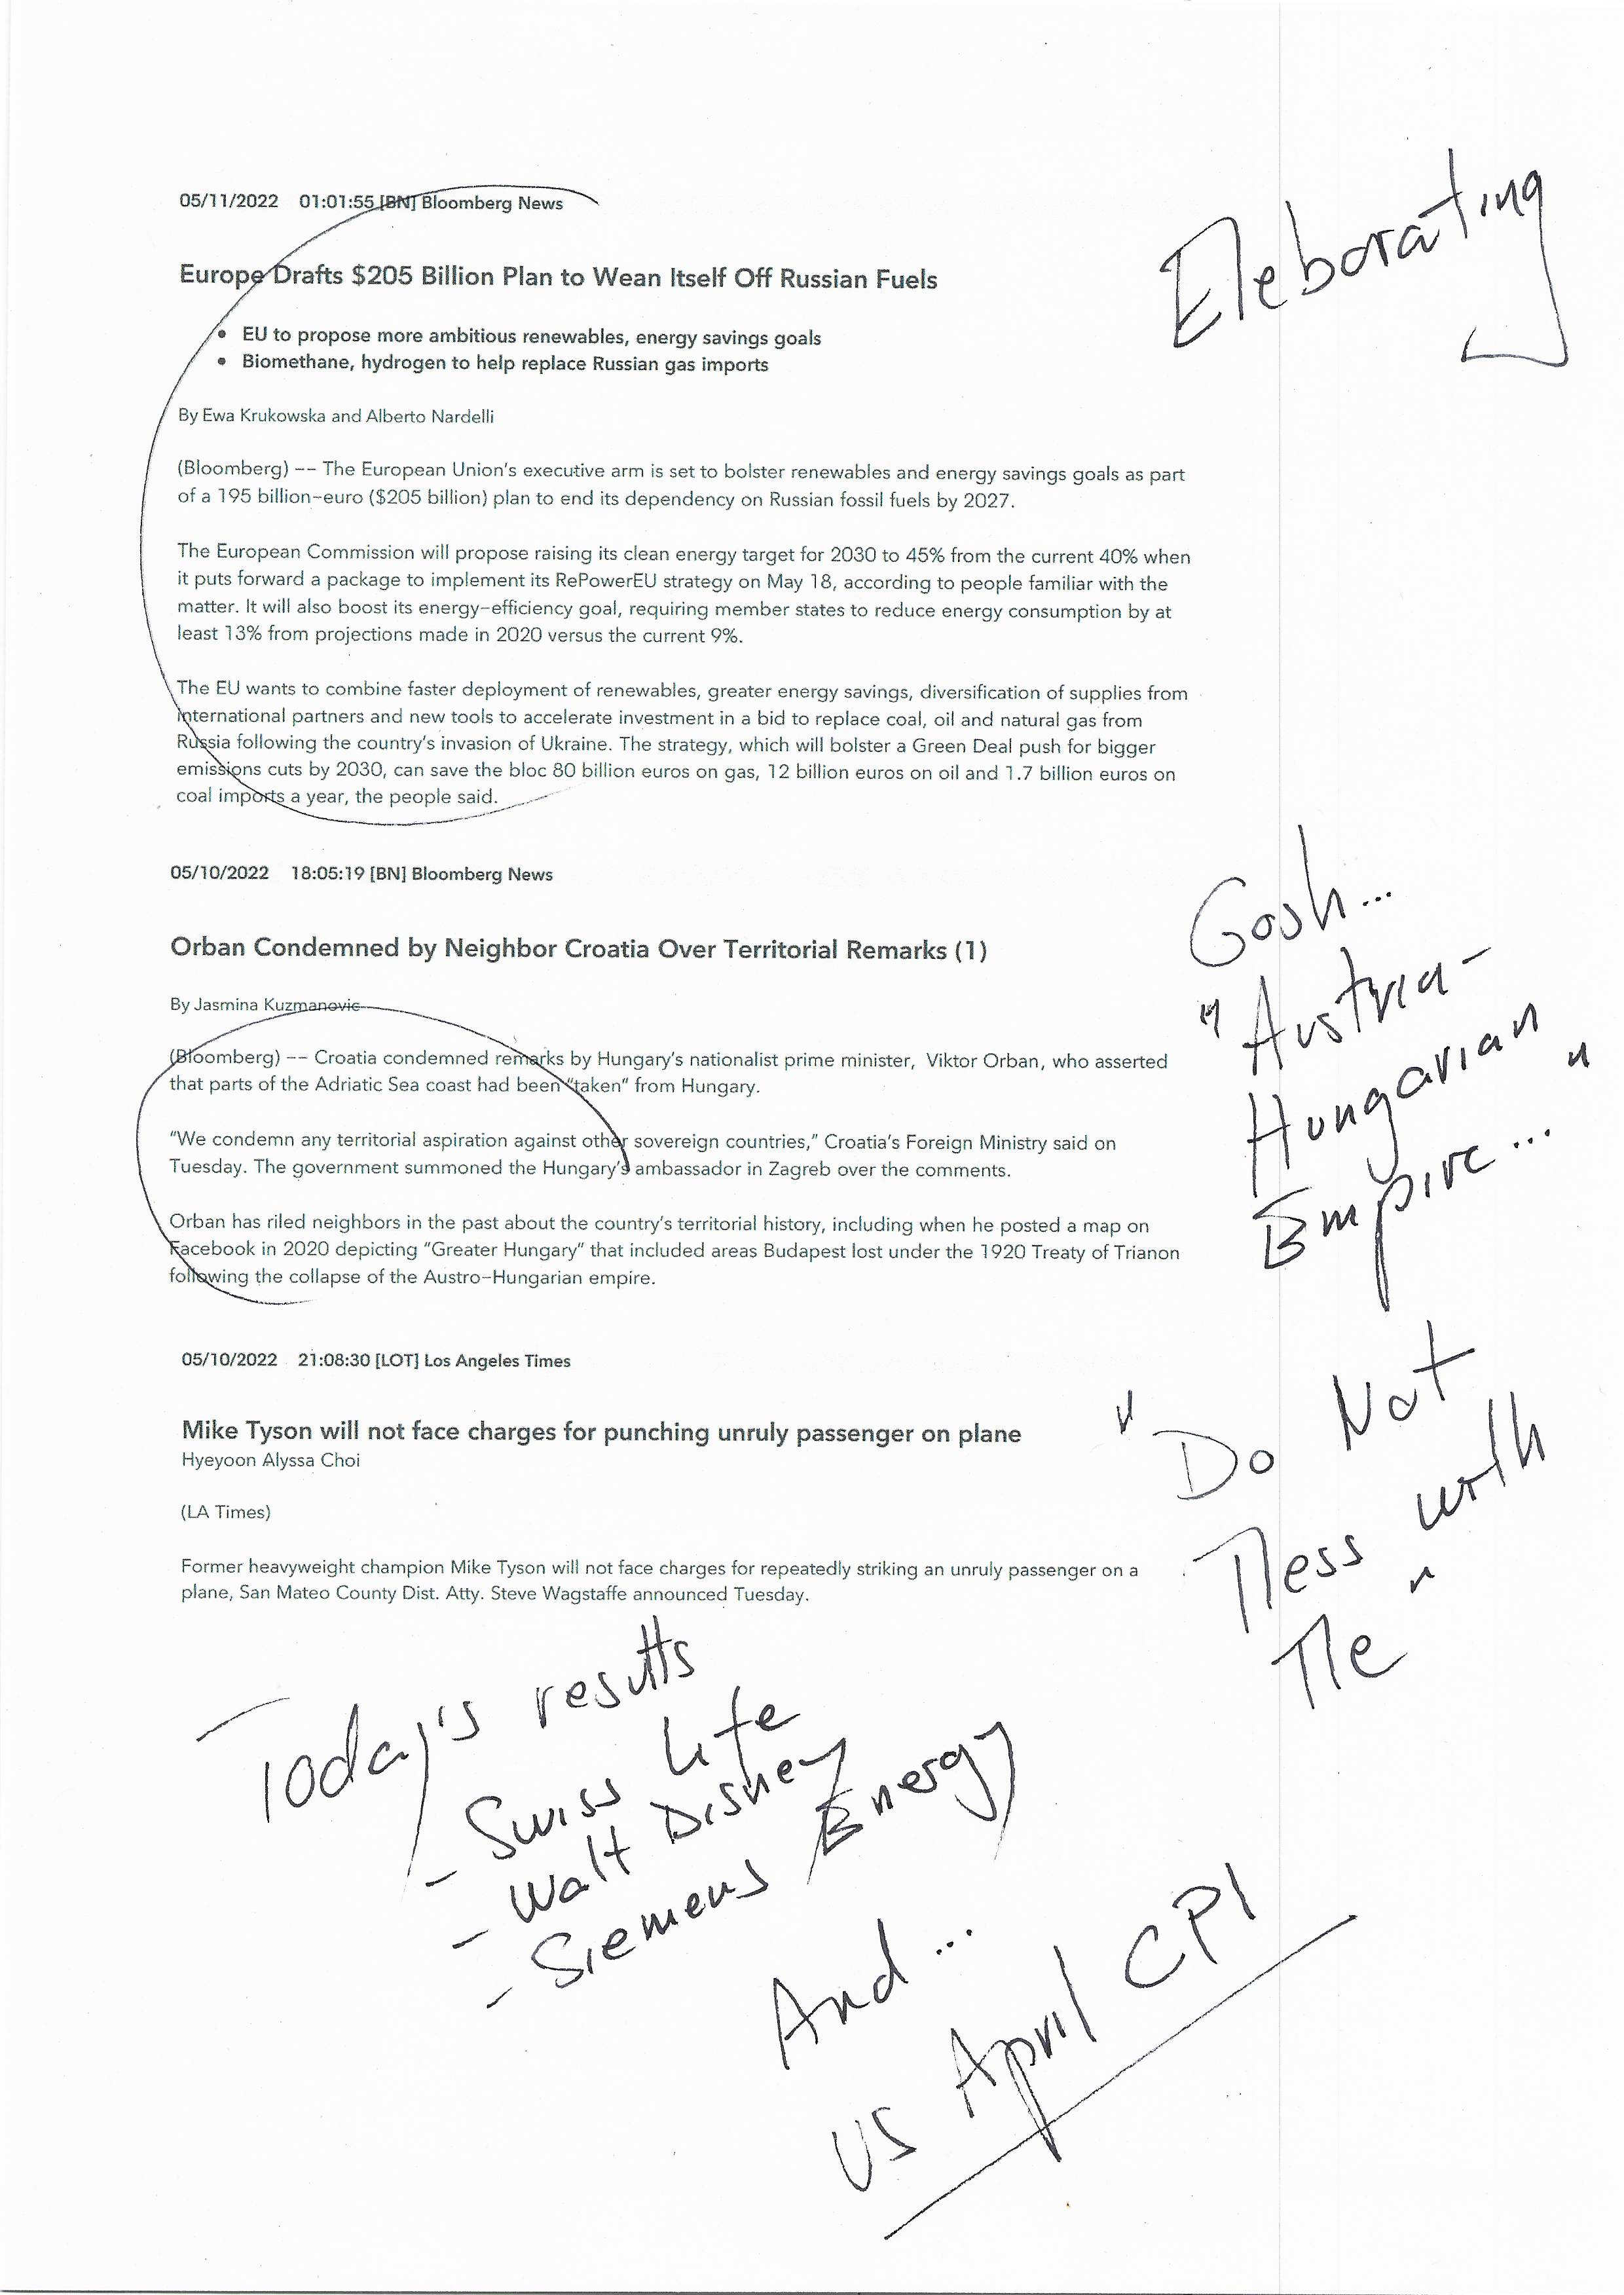 05/11/2022 01:01:55 [BN] Bloomberg News
Eleborating
Europe Drafts $205 Billion Plan to Wean Itself Off Russian Fuels
• EU to propose more ambitious renewables, energy savings goals
• Biomethane, hydrogen to help replace Russian gas imports
By Ewa Krukowska and Alberto Nardelli
(Bloomberg) -- The European Union's executive arm is set to bolster renewables and energy savings goals as part
of a 195 billion-euro ($205 billion) plan to end its dependency on Russian fossil fuels by 2027.
The European Commission will propose raising its clean energy target for 2030 to 45% from the current 40% when
it puts forward a package to implement its RePowerEU strategy on May 18, according to people familiar with the
matter. It will also boost its energy-efficiency goal, requiring member states to reduce energy consumption by at
least 13% from projections made in 2020 versus the current 9%.
The EU wants to combine faster deployment of renewables, greater energy savings, diversification of supplies from
international partners and new tools to accelerate investment in a bid to replace coal, oil and natural gas from
Russia following the country's invasion of Ukraine. The strategy, which will bolster a Green Deal push for bigger
emissions cuts by 2030, can save the bloc 80 billion euros on gas, 12 billion euros on oil and 1.7 billion euros on
coal imports a year, the people said.
05/10/2022 18:05:19 [BN] Bloomberg News
Orban Condemned by Neighbor Croatia Over Territorial Remarks (1)
By Jasmina Kuzmanovic
(Bloomberg) -- Croatia condemned remarks by Hungary's nationalist prime minister, Viktor Orban, who asserted
that parts of the Adriatic Sea coast had been "taken" from Hungary.
"We condemn any territorial aspiration against other sovereign countries," Croatia's Foreign Ministry said on
Tuesday. The government summoned the Hungary's ambassador in Zagreb over the comments.
Orban has riled neighbors in the past about the country's territorial history, including when he posted a map on
Facebook in 2020 depicting "Greater Hungary" that included areas Budapest lost under the 1920 Treaty of Trianon
following the collapse of the Austro-Hungarian empire.
Gosh...
"Austria-
Hungarian
Empire..."
05/10/2022 21:08:30 [LOT] Los Angeles Times
Mike Tyson will not face charges for punching unruly passenger on plane
Hyeyoon Alyssa Choi
(LA Times)
Former heavyweight champion Mike Tyson will not face charges for repeatedly striking an unruly passenger on a
plane, San Mateo County Dist. Atty. Steve Wagstaffe announced Tuesday.
"Do Not
Mess with
Me"
Today's results
- Swiss Life
- Walt Disney
- Siemens Energy
And...
US April CPI